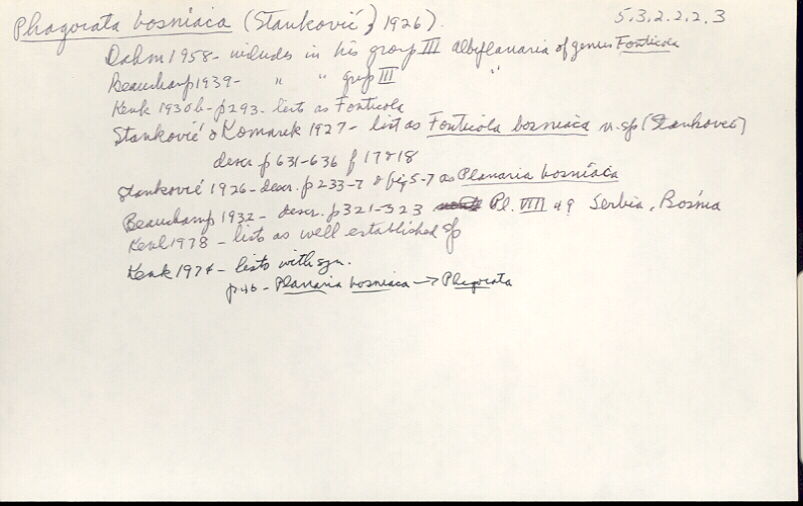 Phagocata bosniaca (Stanković, 1926). 5.3.2.2.2.3
Dahm 1958 - includes in his group III albiplanaria of genus Fonticola
Beauchamp 1939 - " " grop III "
Kenk 1930b - p293 - lists as Fonticola
Stanković & Komarek 1927 - list as Fonticola bosniaca n.sp (Stankovec)
descr p 631-636 f 17 & 18
Stanković 1926 - descr. p 233-7 & fig 5-7 as Planaria bosniaca
Beauchamp 1932 - descr. p 321-323 Pl. VIII Serbia, Bosnia
Kenk 1978 - lists as well established sp
Kenk 1974 - lists with syn.
p 46 - Planaria bosniaca → Phagocata